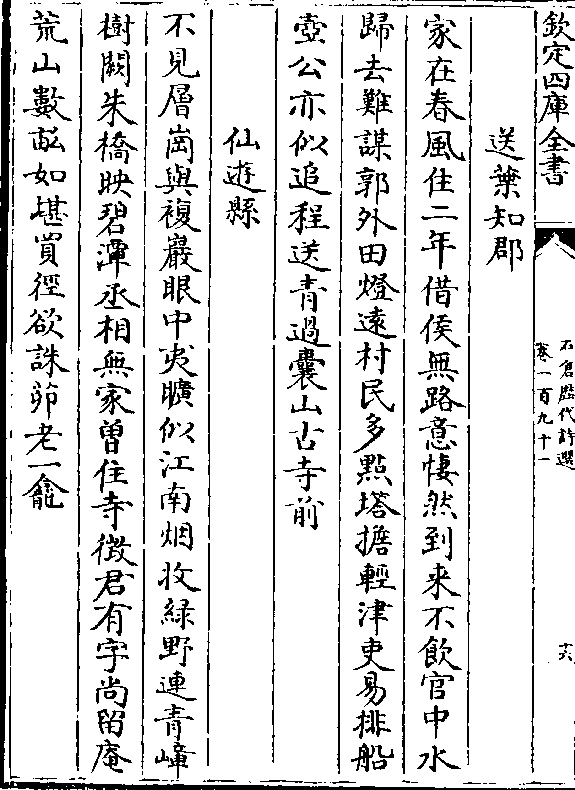 欽定四庫全書
石倉歷代詩選
卷一百九十一
十六
送葉知郡
家在春風住二年借侯無路意悽然到来不飲官中水
歸去難謀郭外田燈逺村民多㸃塔擔輕津吏易排船
壺公亦似追程送青過囊山古寺前
仙逰縣
不見層崗與複巖眼中夷曠似江南烟收緑野連青嶂
樹闕朱橋映碧潭丞相無家曽住寺徵君有字尚留庵
荒山數畝如堪買徑欲誅茆老一龕